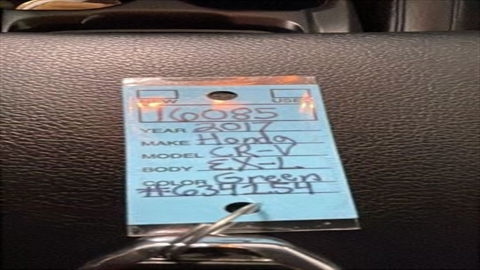 NEW USED
16085
YEAR 2017
MAKE Honda
MODEL CR-V
BODY EX-L
COLOR Green
#634154